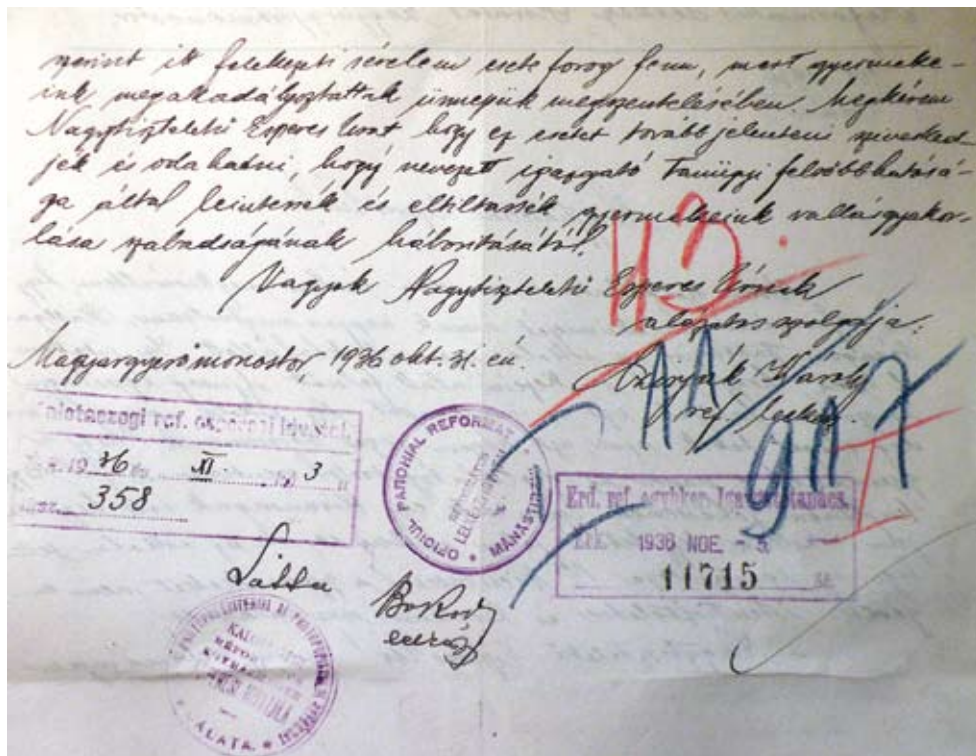 szerint itt felekezeti sérelem esete forog fenn, mert gyermeke-
ink megakadályoztattak ünnepük megszentelésében. Megkérem
Nagytiszteletű Esperes Urat hogy ez esetet továbbjelenteni sziveskedj-
jék és odahatni, hogy nevezett igazgató Tanügyi felsőbbhatósá-
ga által leintessék és eltiltassék gyermekeink vallásgyakor-
lása szabadságának háborításától.
Vagyok Nagytiszteletű Esperes Úrnak
alázatos szolgája:
Magyargyerőmonostor, 1936 okt. 31.-én.
Károly
ref. lelkész.
113.
Kalotaszegi ref. esperesi hivatal.
1936 XI 3
358
OFICIUL PAROHIAL REFORMAT
MĂNĂSTIREN
Erd. ref. egyhker. Igazgatótanács.
Érk. 1936 NOE. - 5.
11715 sz.
Láttu
I